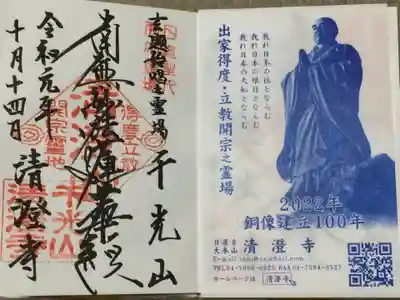 玄題始唱之霊場 千光山
南無妙法蓮華経
得度立教
開宗霊地
清澄寺
令和元年
十月十四日
我れ日本の柱とならむ
我れ日本の眼目とならむ
我れ日本の大船とならむ
出家得度・立教開宗之霊場
2022年
銅像建立100年
日蓮宗
大本山 清澄寺
TEL04-7094-0525 FAX04-7094-0527
ホームページは 清澄寺